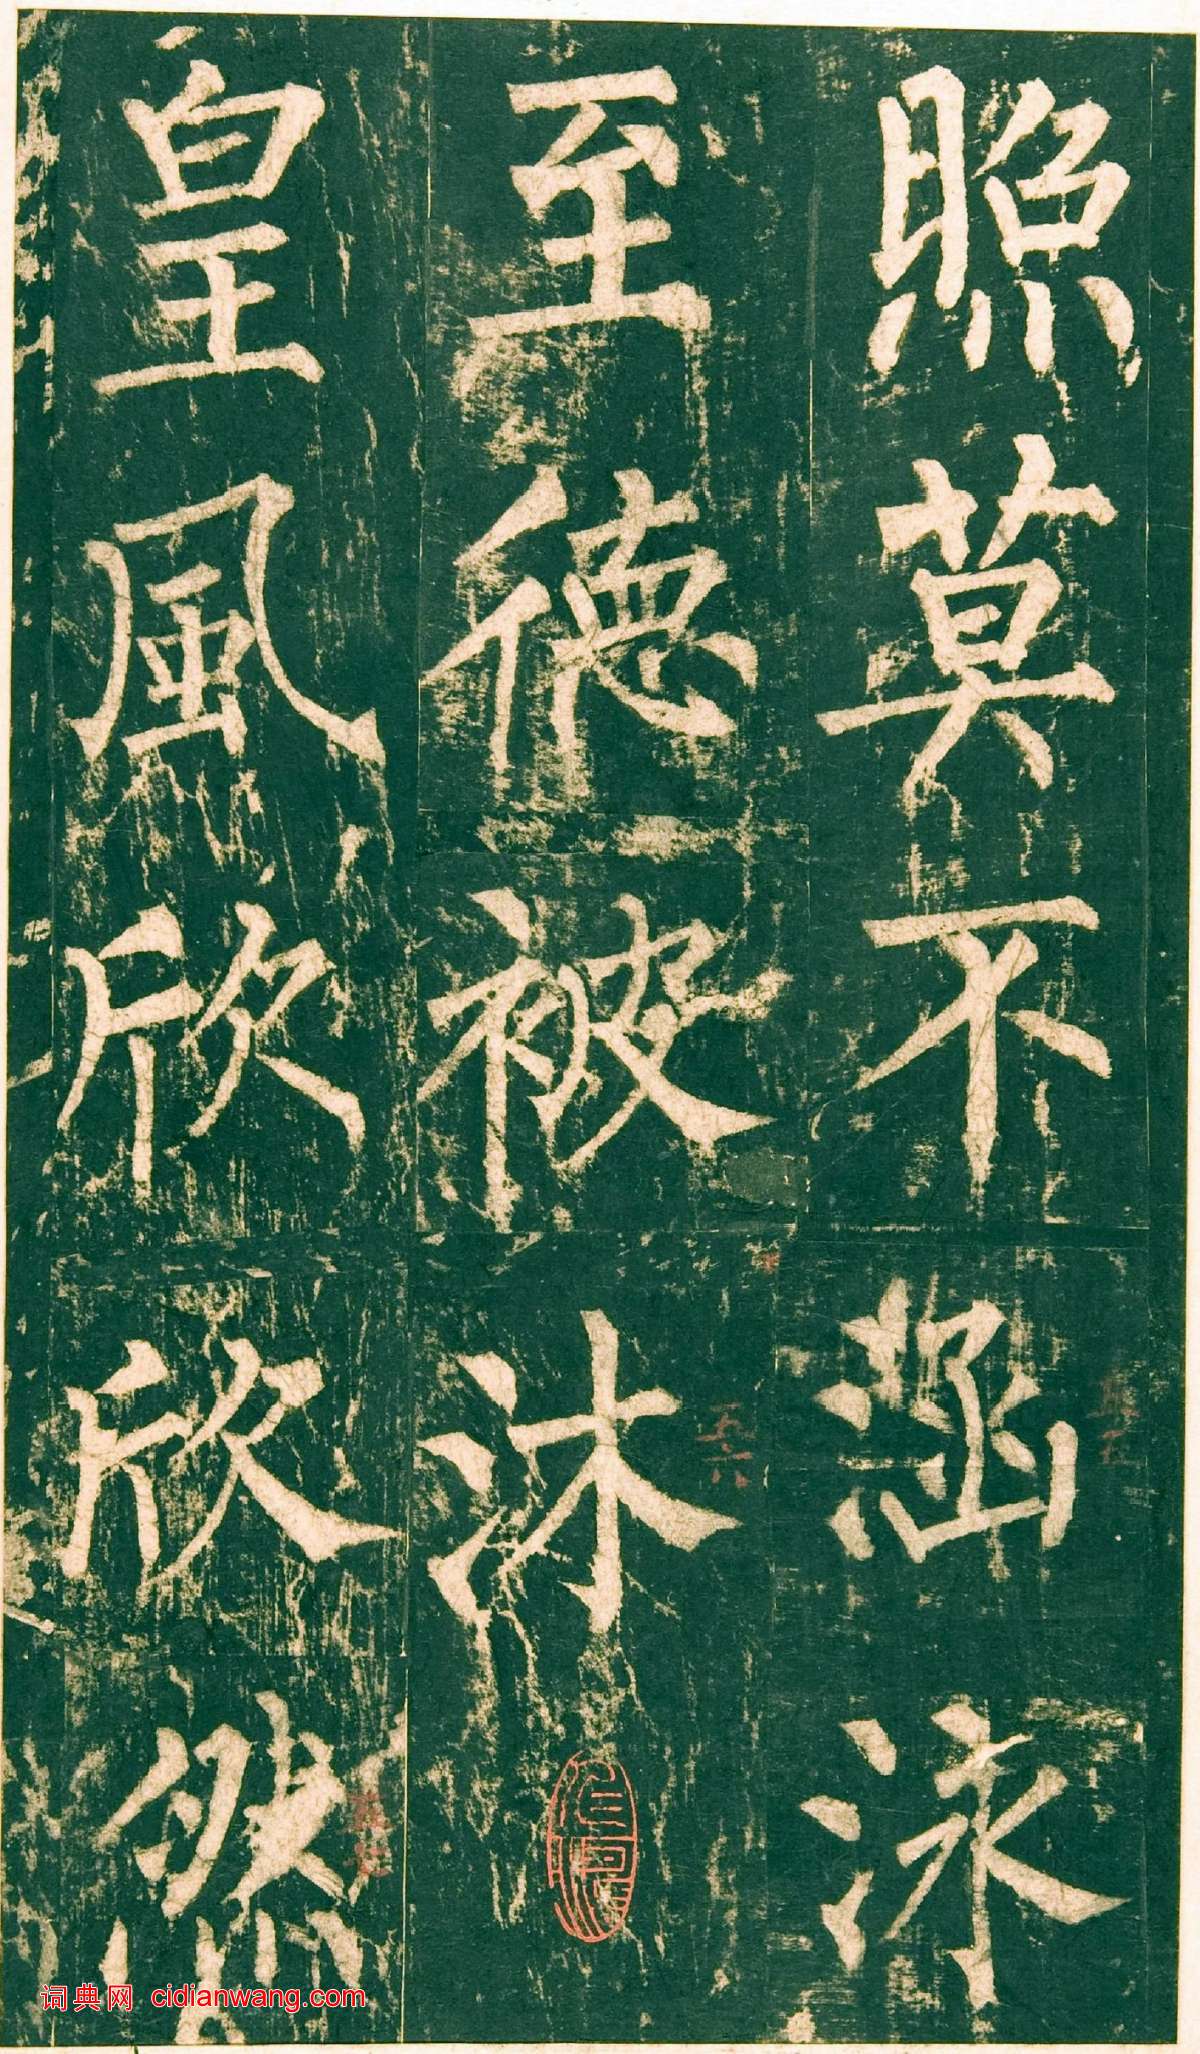 照莫不涵泳
至德被沐
皇風欣欣然
五六
词典网 cidianwang.com